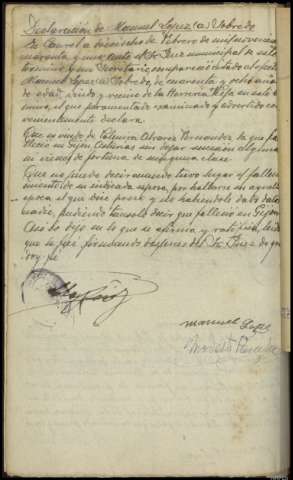 Declaración de Manuel Lopez (a) Sobredo
En Caurel a dieciocho de Febrero de mil novecientos
cuarenta y uno, ante el Sr. Juez municipal de este
termino y mi Secretario, comparecio citado al efecto
Manuel Lopez (a) Sobredo, de cuarenta y ocho años
de edad, viudo y vecino de la Herreria Vieja en este ter
mino, el que juramentado examinado y advertido con
venientemente declara.
Que es viudo de Alvarez Fernandez la que fa
llecio en Gijon Asturias sin dejar sucesion alguna
ni bienes de fortuna de ninguna clase.
Que no puede decir cuando tuvo lugar el falleci
miento de su indicada esposa por hallarse en aquella
epoca el que dice preso y no habiendole dado datos
nadie, pudiendo tan solo decir que fallecio en Gijon
Asi lo dijo en lo que se afirma y ratifica, leida
que le fue firmando despues del Sr. Juez de que
doy fe
manuel Lopez